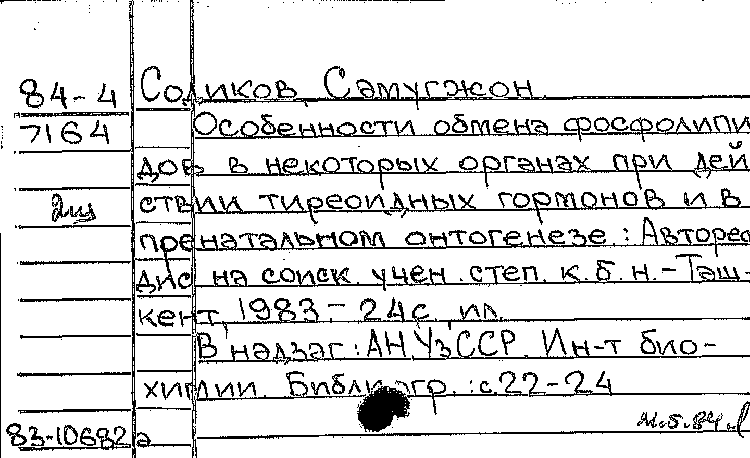 84-4 Содиков, Сэмугжон.
7164 Особенности обмена фосфолипи
дов в некоторых органах при дей
ствии тиреоидных гормонов и в
пренатальном онтогенезе : Авторео
дис на соиск. учен. степ. к.б.н. - Таш-
кент, 1983 - 24с., ил.
В надзаг : АН УзССР. Ин-т био-
химии. Библиогр. : с.22-24
83-10682э